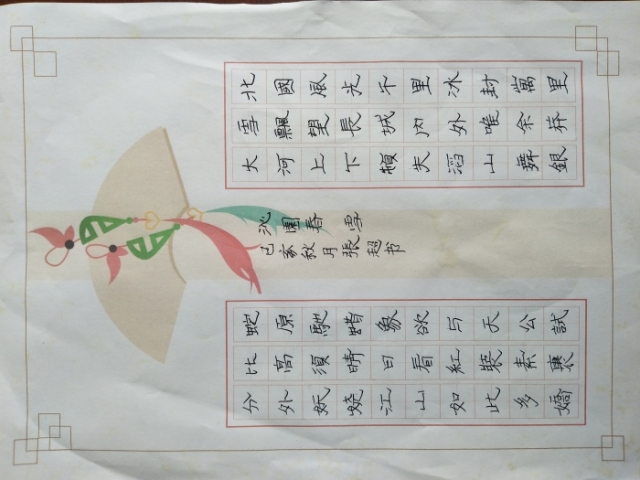 北國風光千里冰封萬里
雪飄望長城内外唯余莽
大河上下頓失滔山舞銀
沁園春雪
己亥秋月張超书
蛇原馳蜡象欲与天公試
比高須晴日看紅裝素裹
分外妖娆江山如此多嬌